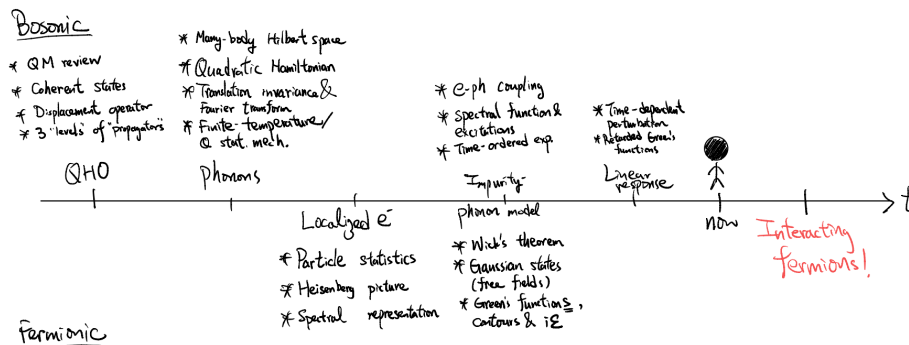 Bosonic
* QM review
* Coherent states
* Displacement operator
* 3 "levels" of "propagators"
QHO
* Many-body Hilbert space
* Quadratic Hamiltonian
* Translation invariance &
Fourier transform
* Finite-temperature/
Q stat. mech.
phonons
Localized e⁻
* Particle statistics
* Heisenberg picture
* Spectral representation
* e-ph coupling
* Spectral function &
excitations
* Time-ordered exp.
Impurity-
phonon model
* Wick's theorem
* Gaussian states
(free fields)
* Green's functions,
contours & iε
* Time-dependent
perturbation
* Retarded Green's
functions
Linear
response
now
Interacting
fermions!
t
Fermionic